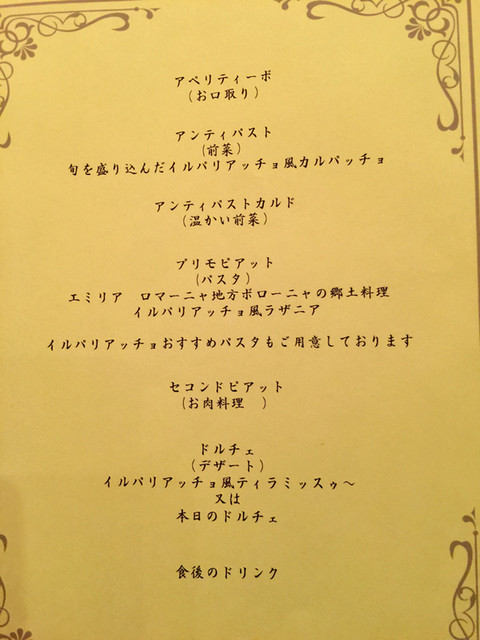 アペリティーボ
(お口取り)
アンティパスト
(前菜)
旬を盛り込んだイルパリアッチョ風カルパッチョ
アンティパストカルド
(温かい前菜)
プリモピアット
(パスタ)
エミリア　ロマーニャ地方ボローニャの郷土料理
イルパリアッチョ風ラザニア
イルパリアッチョおすすめパスタもご用意しております
セコンドピアット
(お肉料理　)
ドルチェ
(デザート)
イルパリアッチョ風ティラミッスゥ～
又は
本日のドルチェ
食後のドリンク